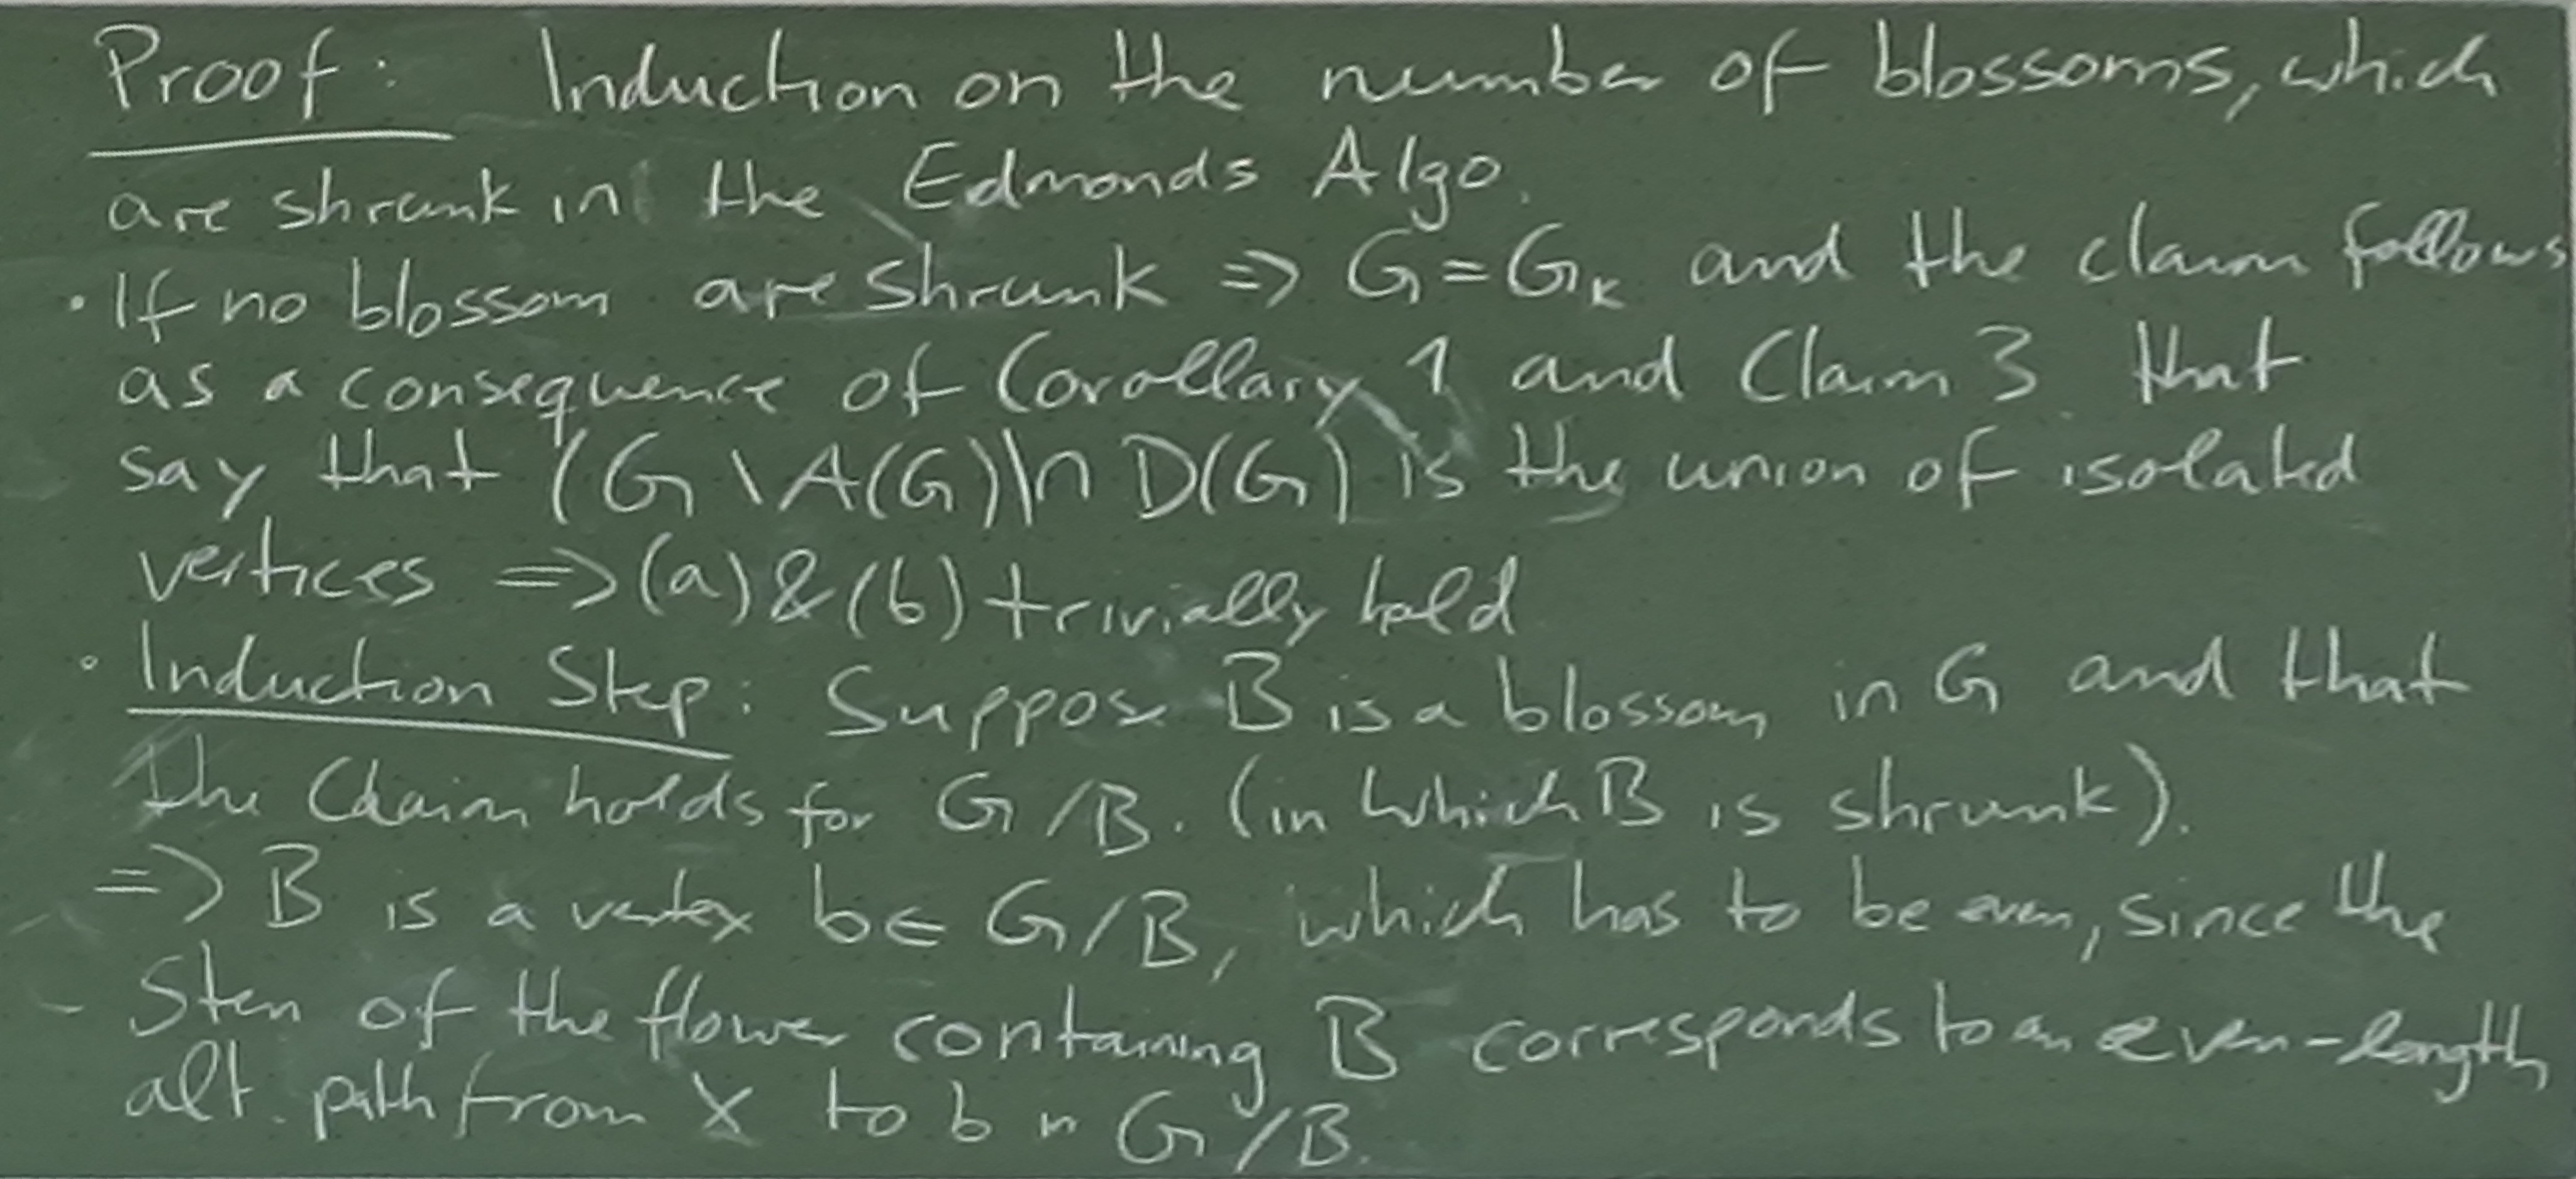 Proof: Induction on the number of blossoms, which
are shrunk in the Edmonds Algo.
• If no blossom are shrunk => G = G_K and the claim follows
as a consequence of Corollary 1 and Claim 3 that
say that (G \ A(G)) ∩ D(G) is the union of isolated
vertices => (a) & (b) trivially hold
• Induction Step: Suppose B is a blossom in G and that
the Claim holds for G/B. (in which B is shrunk).
=> B is a vertex b ∈ G/B, which has to be even, since the
- Stem of the flower containing B corresponds to an even-length
alt. path from X to b in G/B.